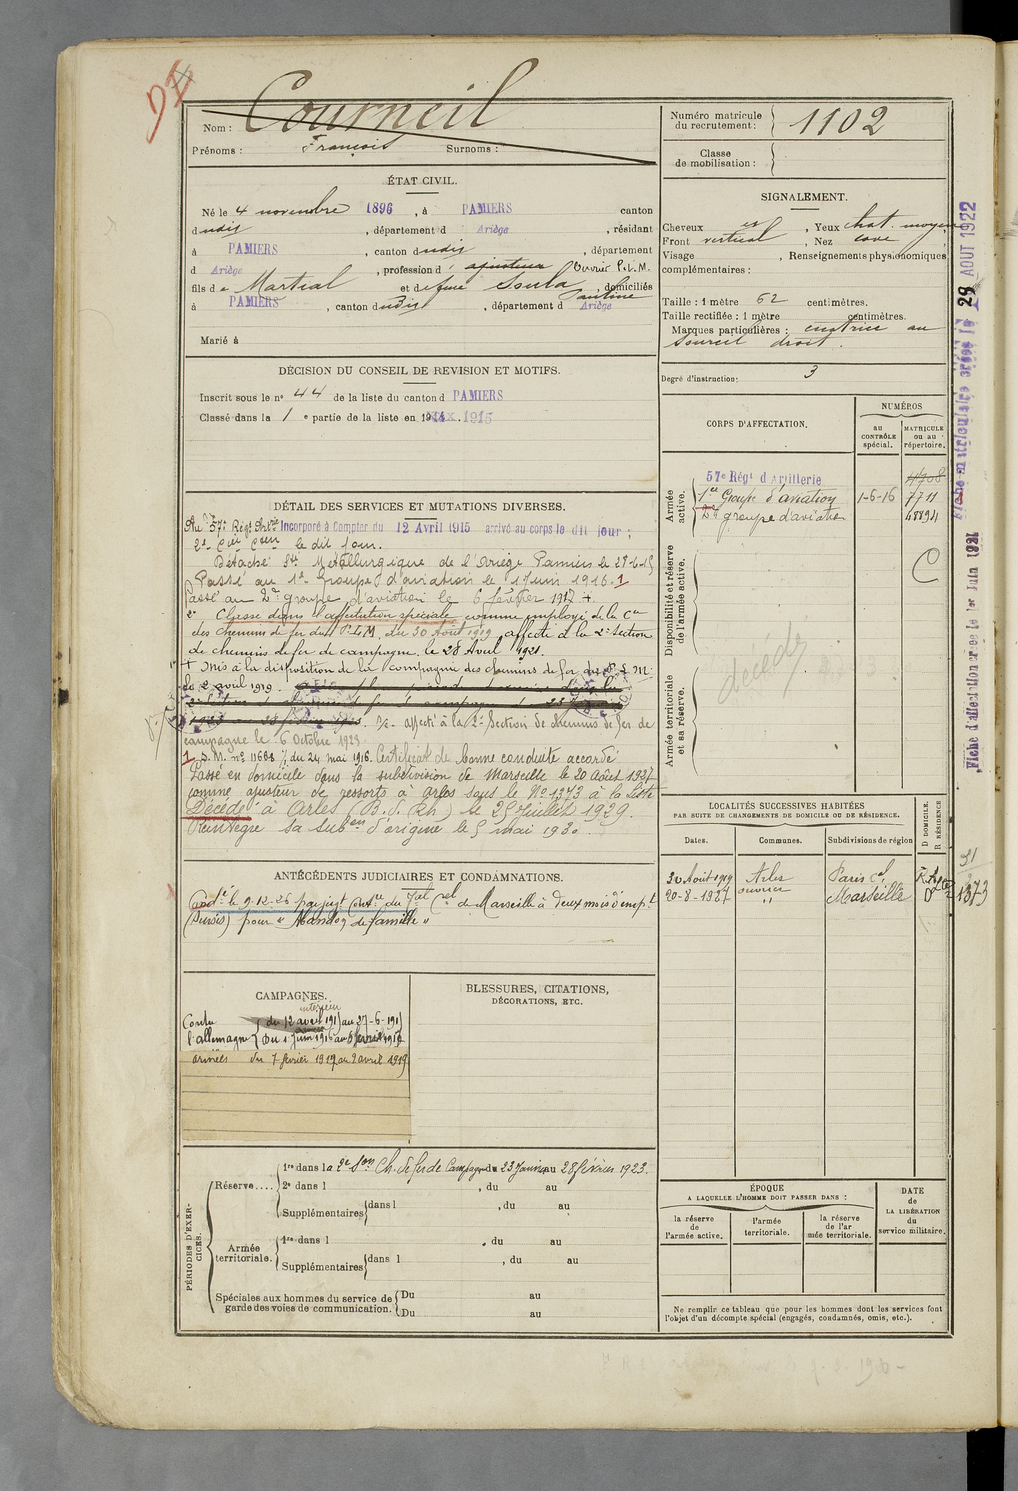 Nom : Courneil
Prénoms : François Surnoms :
ÉTAT CIVIL.
Né le 4 novembre 1896, à PAMIERS canton
dudit, département d Ariège, résidant
à PAMIERS, canton dudit, département
d Ariège, profession d' ajusteur Ouvrier P.L.M.
fils de Martial et de feue Soula Pauline, domiciliés
à PAMIERS, canton dudit, département d Ariège
Marié à
DÉCISION DU CONSEIL DE REVISION ET MOTIFS.
Inscrit sous le n° 44 de la liste du canton d PAMIERS
Classé dans la 1e partie de la liste en 1915
DÉTAIL DES SERVICES ET MUTATIONS DIVERSES.
Au 57e Régt Artie Incorporé à Compter du 12 Avril 1915 arrivé au corps le dit jour;
2e Cnr Cour le dit jour.
Détaché Sté Métallurgique de l'Ariège Pamiers le 28-6-15
Passé au 1er Groupe d'aviation le 1 Juin 1916. 1
Passé au 2e groupe d'aviation le 6 février 1917 +
Classé dans l'affectation spéciale comme employé de la Cie
des chemins de fer du P.L.M. du 30 Août 1919, affecté à la 2e Section
de chemins de fer de campagne, le 28 Avril 1921.
+ Mis à la disposition de la compagnie des chemins de fer du P.L.M.
le 2 avril 1919.
affecté à la 2e Section de Chemins de fer de
campagne le 6 Octobre 1923.
1 D.M. n° 11668 7/ du 24 mai 1916. Certificat de bonne conduite accordé
Passé en domicile dans la subdivision de Marseille le 20 Août 1927
comme ajusteur de ressorts à Arles sous le N° 1373 à la liste
Décédé à Arles (B. d. Rh) le 25 Juillet 1929.
Réintégré sa subon d'origine le 5 mai 1930.
ANTÉCÉDENTS JUDICIAIRES ET CONDAMNATIONS.
Condé le 9-12-26 par jugt contre du Tal Cel de Marseille à deux mois d'empt
(sursis) pour "Abandon de famille"
CAMPAGNES.
intérieur
Contre l'allemagne du 12 avril 1915 au 27-6-1915
du 1 Juin 1916 au 6 février 1917
armées du 7 février 1917 au 2 avril 1919
BLESSURES, CITATIONS,
DÉCORATIONS, ETC.
PÉRIODES D'EXERCICES.
Réserve....
1re dans la 2e Son Ch. de fer de Campagne du 23 Janvier au 28 février 1923.
2e dans l , du au
Supplémentaires dans l , du au
Armée territoriale.
1re dans l , du au
Supplémentaires dans l , du au
Spéciales aux hommes du service de garde des voies de communication.
Du au
Du au
Numéro matricule du recrutement : 1102
Classe de mobilisation :
SIGNALEMENT.
Cheveux , Yeux chat. moyen
Front vertical, Nez cave
Visage , Renseignements physionomiques
complémentaires :
Taille : 1 mètre 62 centimètres.
Taille rectifiée : 1 mètre centimètres.
Marques particulières : cicatrice au
sourcil droit.
Degré d'instruction : 3
CORPS D'AFFECTATION.
NUMÉROS
au CONTRÔLE spécial.
MATRICULE ou au répertoire.
Armée active.
57e Régt d'Artillerie 4708
1er Groupe d'aviation 1-6-16 7711
2e groupe d'aviation 48894
Disponibilité et réserve de l'armée active.
C
décédé
Armée territoriale et sa réserve.
LOCALITÉS SUCCESSIVES HABITÉES
PAR SUITE DE CHANGEMENTS DE DOMICILE OU DE RÉSIDENCE.
D DOMICILE.
R RÉSIDENCE
Dates. Communes. Subdivisions de région
30 Août 1919 Arles Paris Cal
20-8-1927 " Marseille D 1373
ÉPOQUE
A LAQUELLE L'HOMME DOIT PASSER DANS :
la réserve de l'armée active.
l'armée territoriale.
la réserve de l'armée territoriale.
DATE de LA LIBÉRATION du service militaire.
Ne remplir ce tableau que pour les hommes dont les services font
l'objet d'un décompte spécial (engagés, condamnés, omis, etc.).
Fiche matriculaire créée le 29 AOUT 1922
Fiche d'affectation créée le 1er Juin 1921